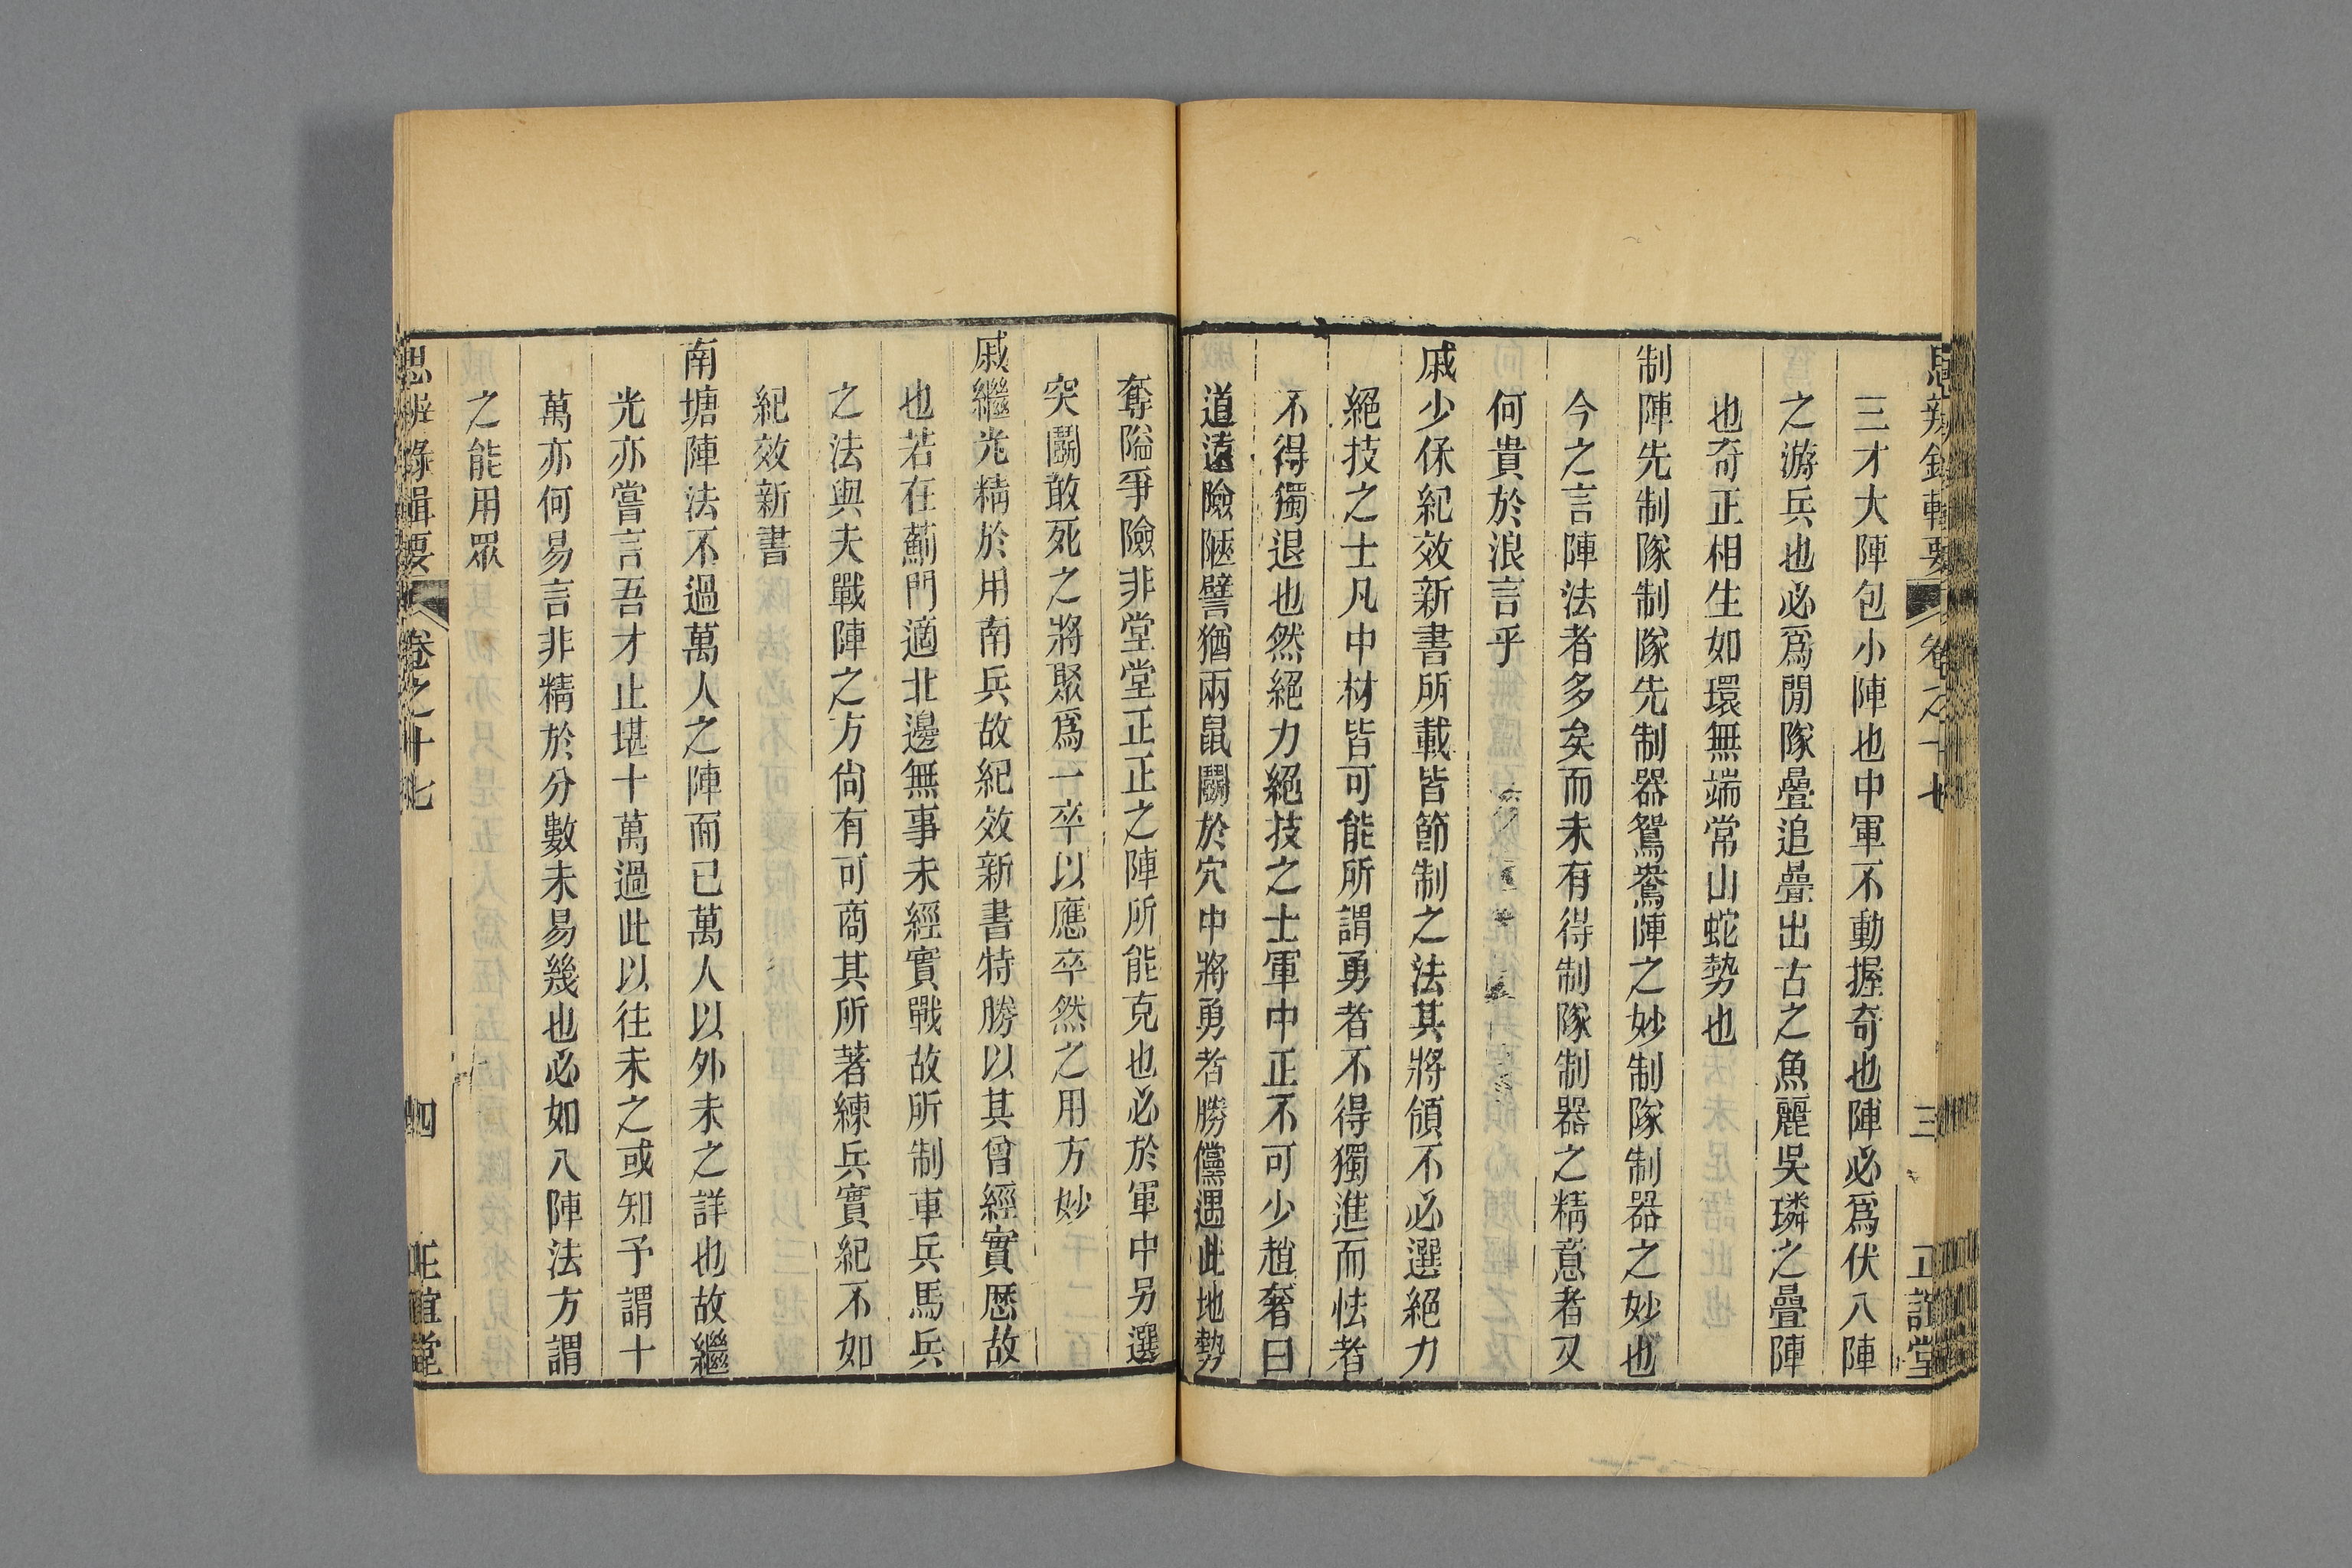 思辨錄輯要 卷之十七 三 正誼堂
三才大陣包小陣也中軍不動握奇也陣必爲伏八陣
之游兵也必爲閒隊疊追疊出古之魚麗吳璘之疊陣
也奇正相生如環無端常山蛇勢也
制陣先制隊制隊先制器鴛鴦陣之妙制隊制器之妙也
今之言陣法者多矣而未有得制隊制器之精意者又
何貴於浪言乎
戚少保紀效新書所載皆節制之法其將領不必選絕力
絕技之士凡中材皆可能所謂勇者不得獨進而怯者
不得獨退也然絕力絕技之士軍中正不可少趙奢曰
道遠險陿譬猶兩鼠鬭於穴中將勇者勝儻遇此地勢
奪隘爭險非堂堂正正之陣所能克也必於軍中另選
突鬭敢死之將聚爲一卒以應卒然之用方妙
戚繼光精於用南兵故紀效新書特勝以其曾經實歷故
也若在薊門適北邊無事未經實戰故所制車兵馬兵
之法與夫戰陣之方尙有可商其所著練兵實紀不如
紀效新書
南塘陣法不過萬人之陣而已萬人以外未之詳也故繼
光亦嘗言吾才止堪十萬過此以往未之或知予謂十
萬亦何易言非精於分數未易幾也必如八陣法方謂
之能用眾
思辨錄輯要 卷之十七 四 正誼堂